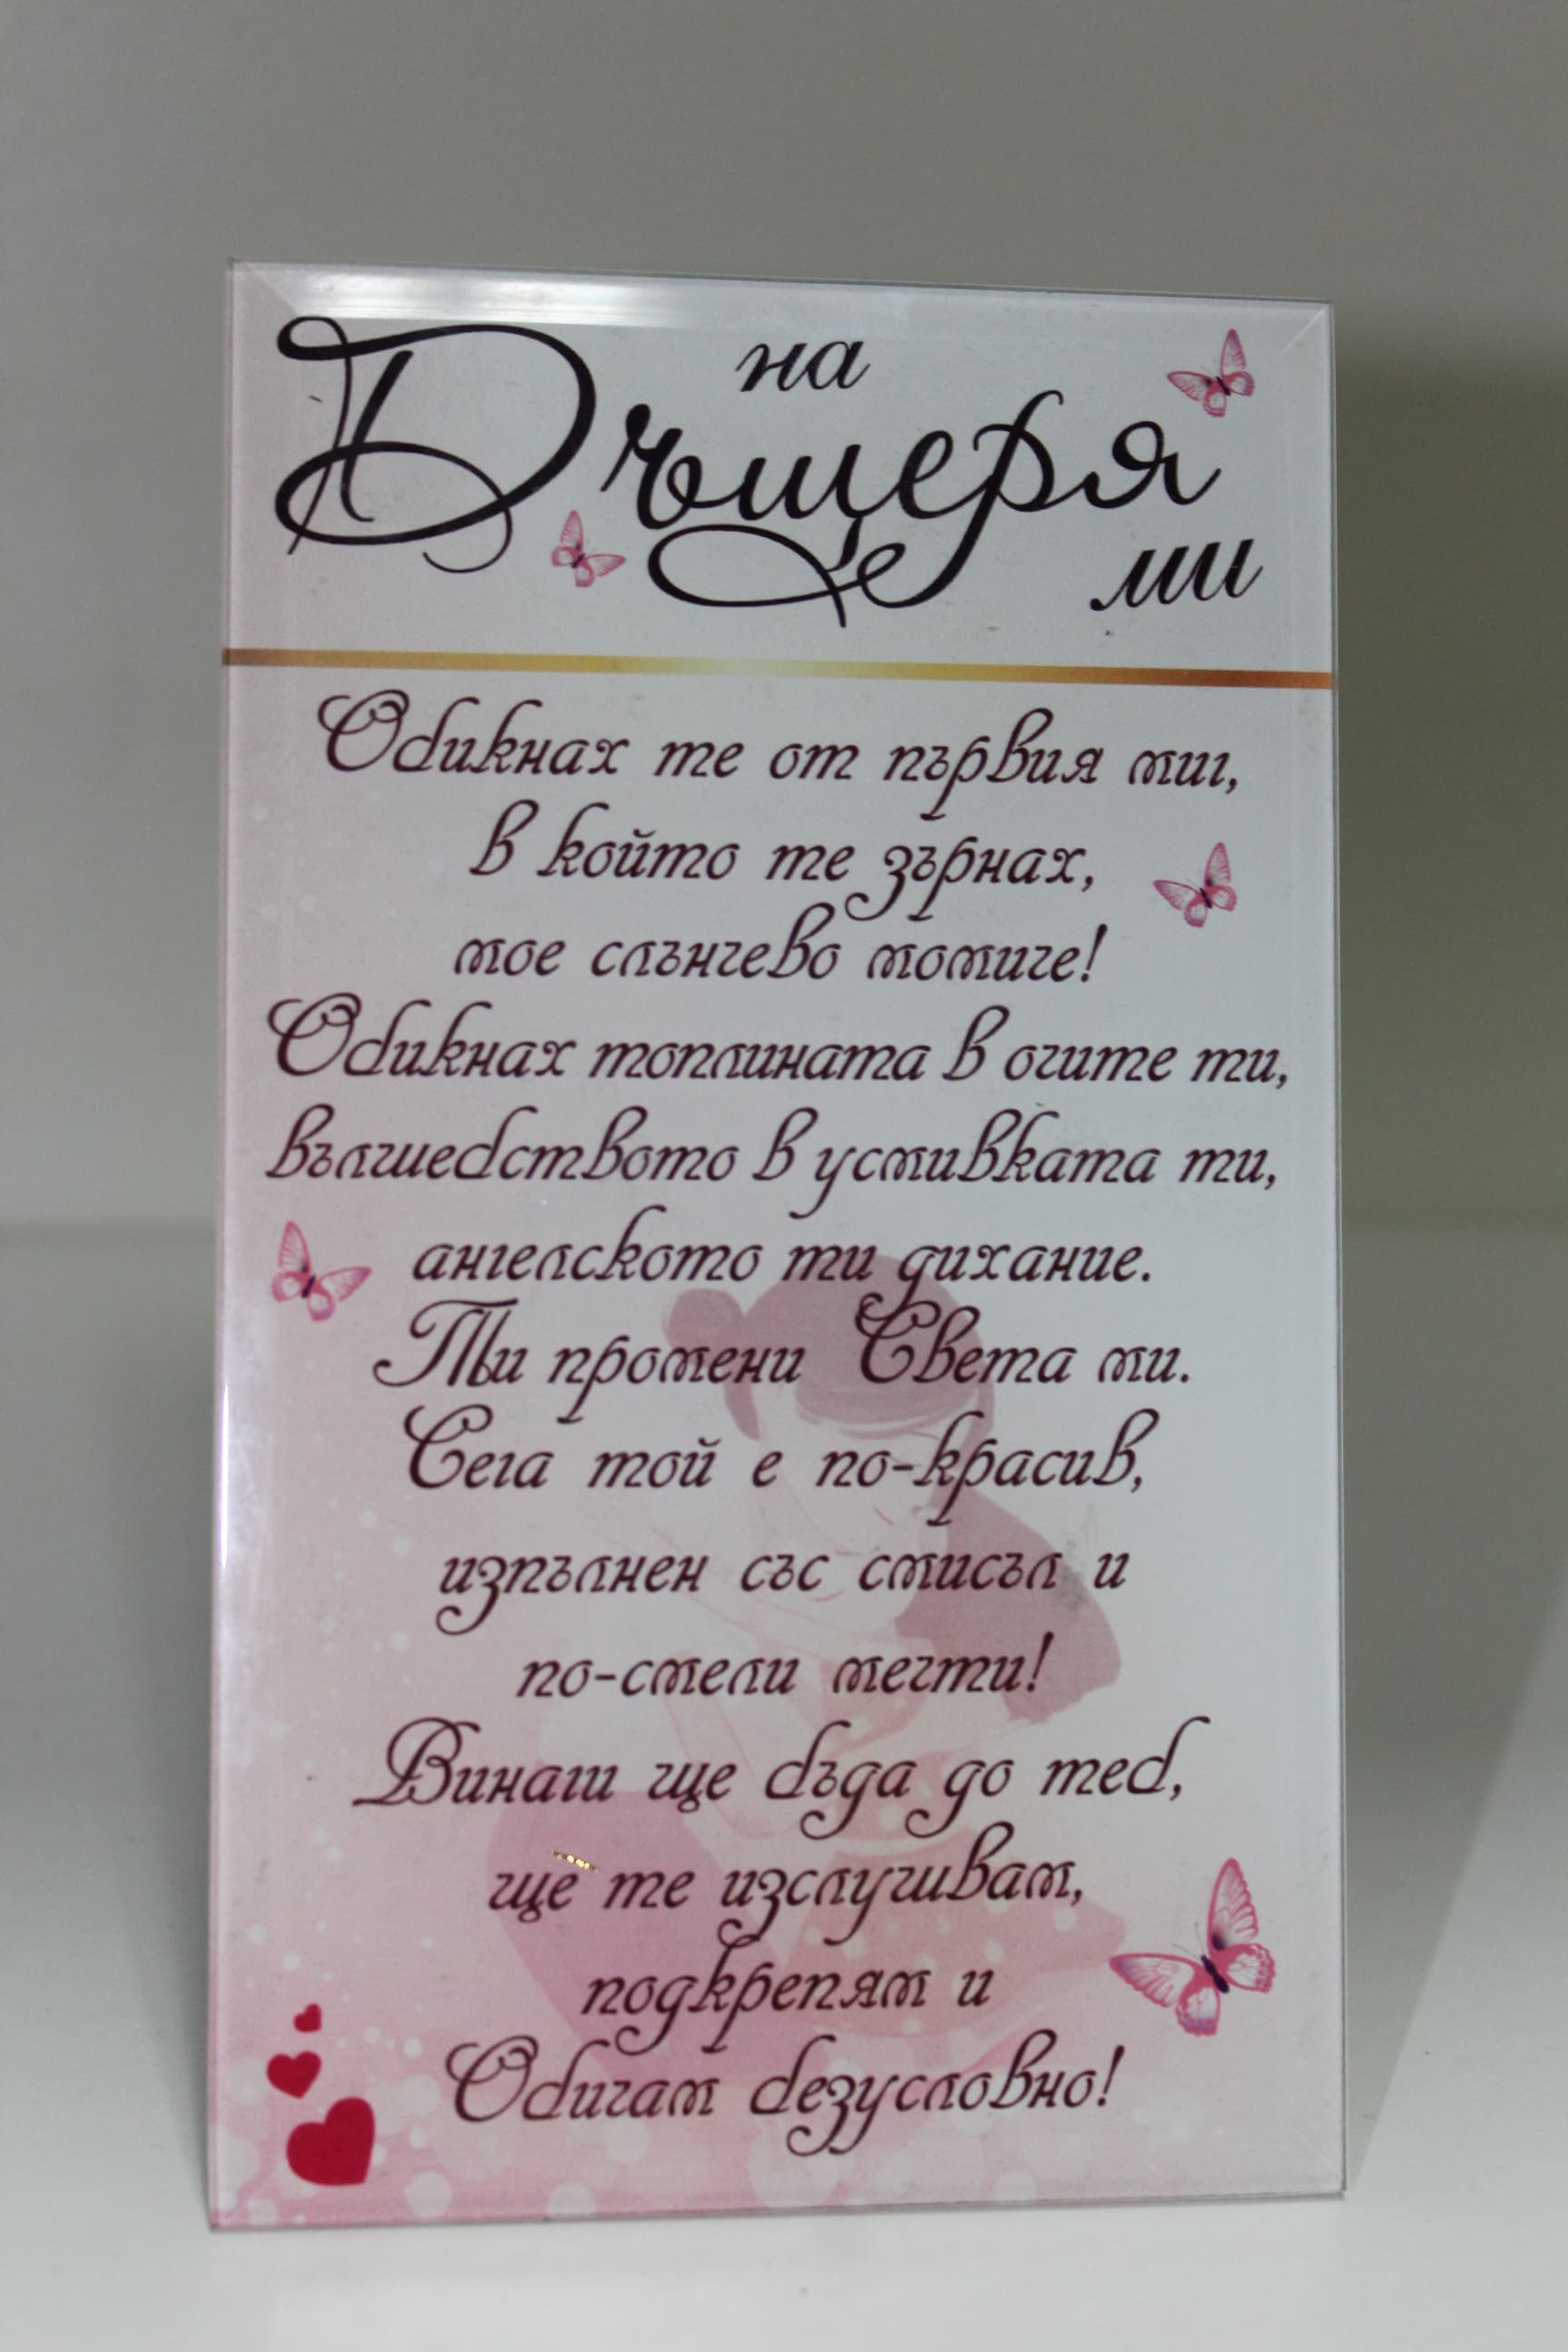 на
Дъщеря
ми
Обикнах те от първия миг,
в който те зърнах,
мое слънчево момиче!
Обикнах топлината в очите ти,
вълшебството в усмивката ти,
ангелското ти дихание.
Ти промени Света ми.
Сега той е по-красив,
изпълнен със смисъл и
по-смели мечти!
Винаги ще бъда до теб,
ще те изслушвам,
подкрепям и
Обичам безусловно!